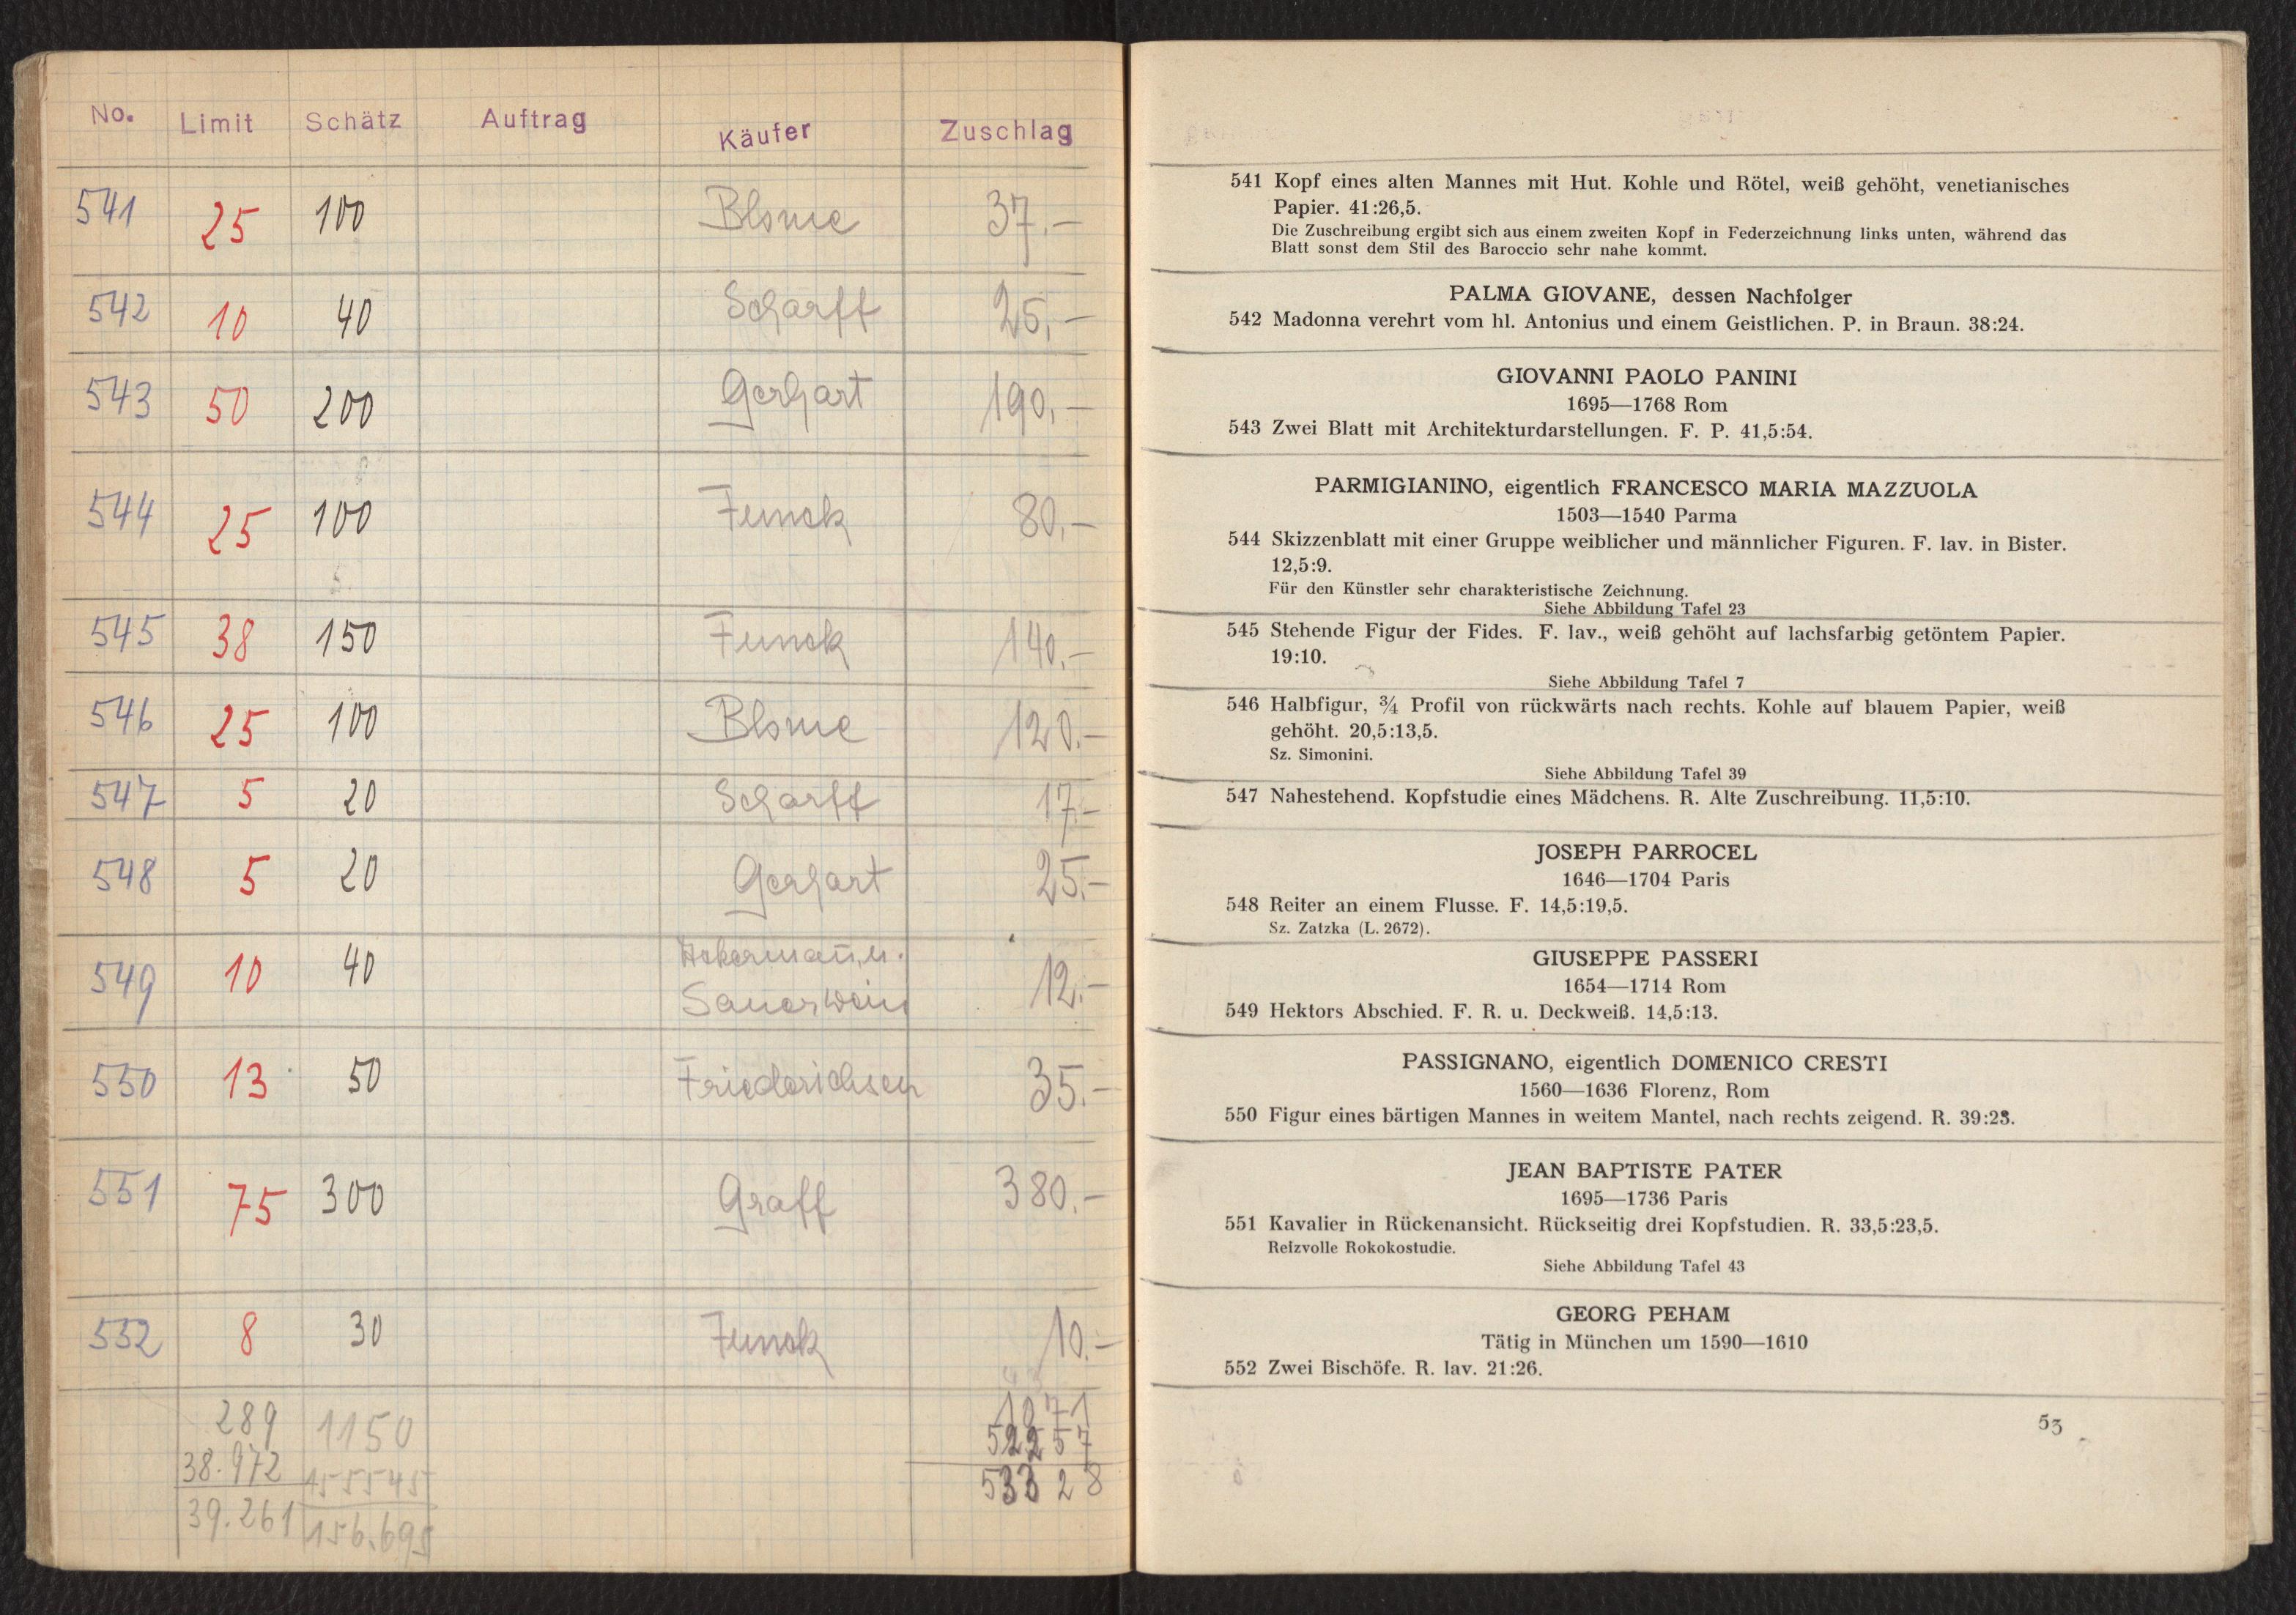 No. Limit Schätz Auftrag Käufer Zuschlag
541 25 100 Blome 37.–
542 10 40 Scharff 25,–
543 50 200 Gerhart 190,–
544 25 100 Funck 80,–
545 38 150 Funck 140.–
546 25 100 Blome 120.–
547 5 20 Scharff 17.–
548 5 20 Gerhart 25.–
549 10 40 Ackermann u. Sauerwein 12.–
550 13 50 Friederichsen 35.–
551 75 300 Graff 380.–
552 8 30 Funck 10.–
289 1150 1071
38.972 155545 52257
39.261 156.695 53328
541 Kopf eines alten Mannes mit Hut. Kohle und Rötel, weiß gehöht, venetianisches
Papier. 41:26,5.
Die Zuschreibung ergibt sich aus einem zweiten Kopf in Federzeichnung links unten, während das
Blatt sonst dem Stil des Baroccio sehr nahe kommt.
PALMA GIOVANE, dessen Nachfolger
542 Madonna verehrt vom hl. Antonius und einem Geistlichen. P. in Braun. 38:24.
GIOVANNI PAOLO PANINI
1695—1768 Rom
543 Zwei Blatt mit Architekturdarstellungen. F. P. 41,5:54.
PARMIGIANINO, eigentlich FRANCESCO MARIA MAZZUOLA
1503—1540 Parma
544 Skizzenblatt mit einer Gruppe weiblicher und männlicher Figuren. F. lav. in Bister.
12,5:9.
Für den Künstler sehr charakteristische Zeichnung.
Siehe Abbildung Tafel 23
545 Stehende Figur der Fides. F. lav., weiß gehöht auf lachsfarbig getöntem Papier.
19:10.
Siehe Abbildung Tafel 7
546 Halbfigur, ¾ Profil von rückwärts nach rechts. Kohle auf blauem Papier, weiß
gehöht. 20,5:13,5.
Sz. Simonini.
Siehe Abbildung Tafel 39
547 Nahestehend. Kopfstudie eines Mädchens. R. Alte Zuschreibung. 11,5:10.
JOSEPH PARROCEL
1646—1704 Paris
548 Reiter an einem Flusse. F. 14,5:19,5.
Sz. Zatzka (L. 2672).
GIUSEPPE PASSERI
1654—1714 Rom
549 Hektors Abschied. F. R. u. Deckweiß. 14,5:13.
PASSIGNANO, eigentlich DOMENICO CRESTI
1560—1636 Florenz, Rom
550 Figur eines bärtigen Mannes in weitem Mantel, nach rechts zeigend. R. 39:23.
JEAN BAPTISTE PATER
1695—1736 Paris
551 Kavalier in Rückenansicht. Rückseitig drei Kopfstudien. R. 33,5:23,5.
Reizvolle Rokokostudie.
Siehe Abbildung Tafel 43
GEORG PEHAM
Tätig in München um 1590—1610
552 Zwei Bischöfe. R. lav. 21:26.
53